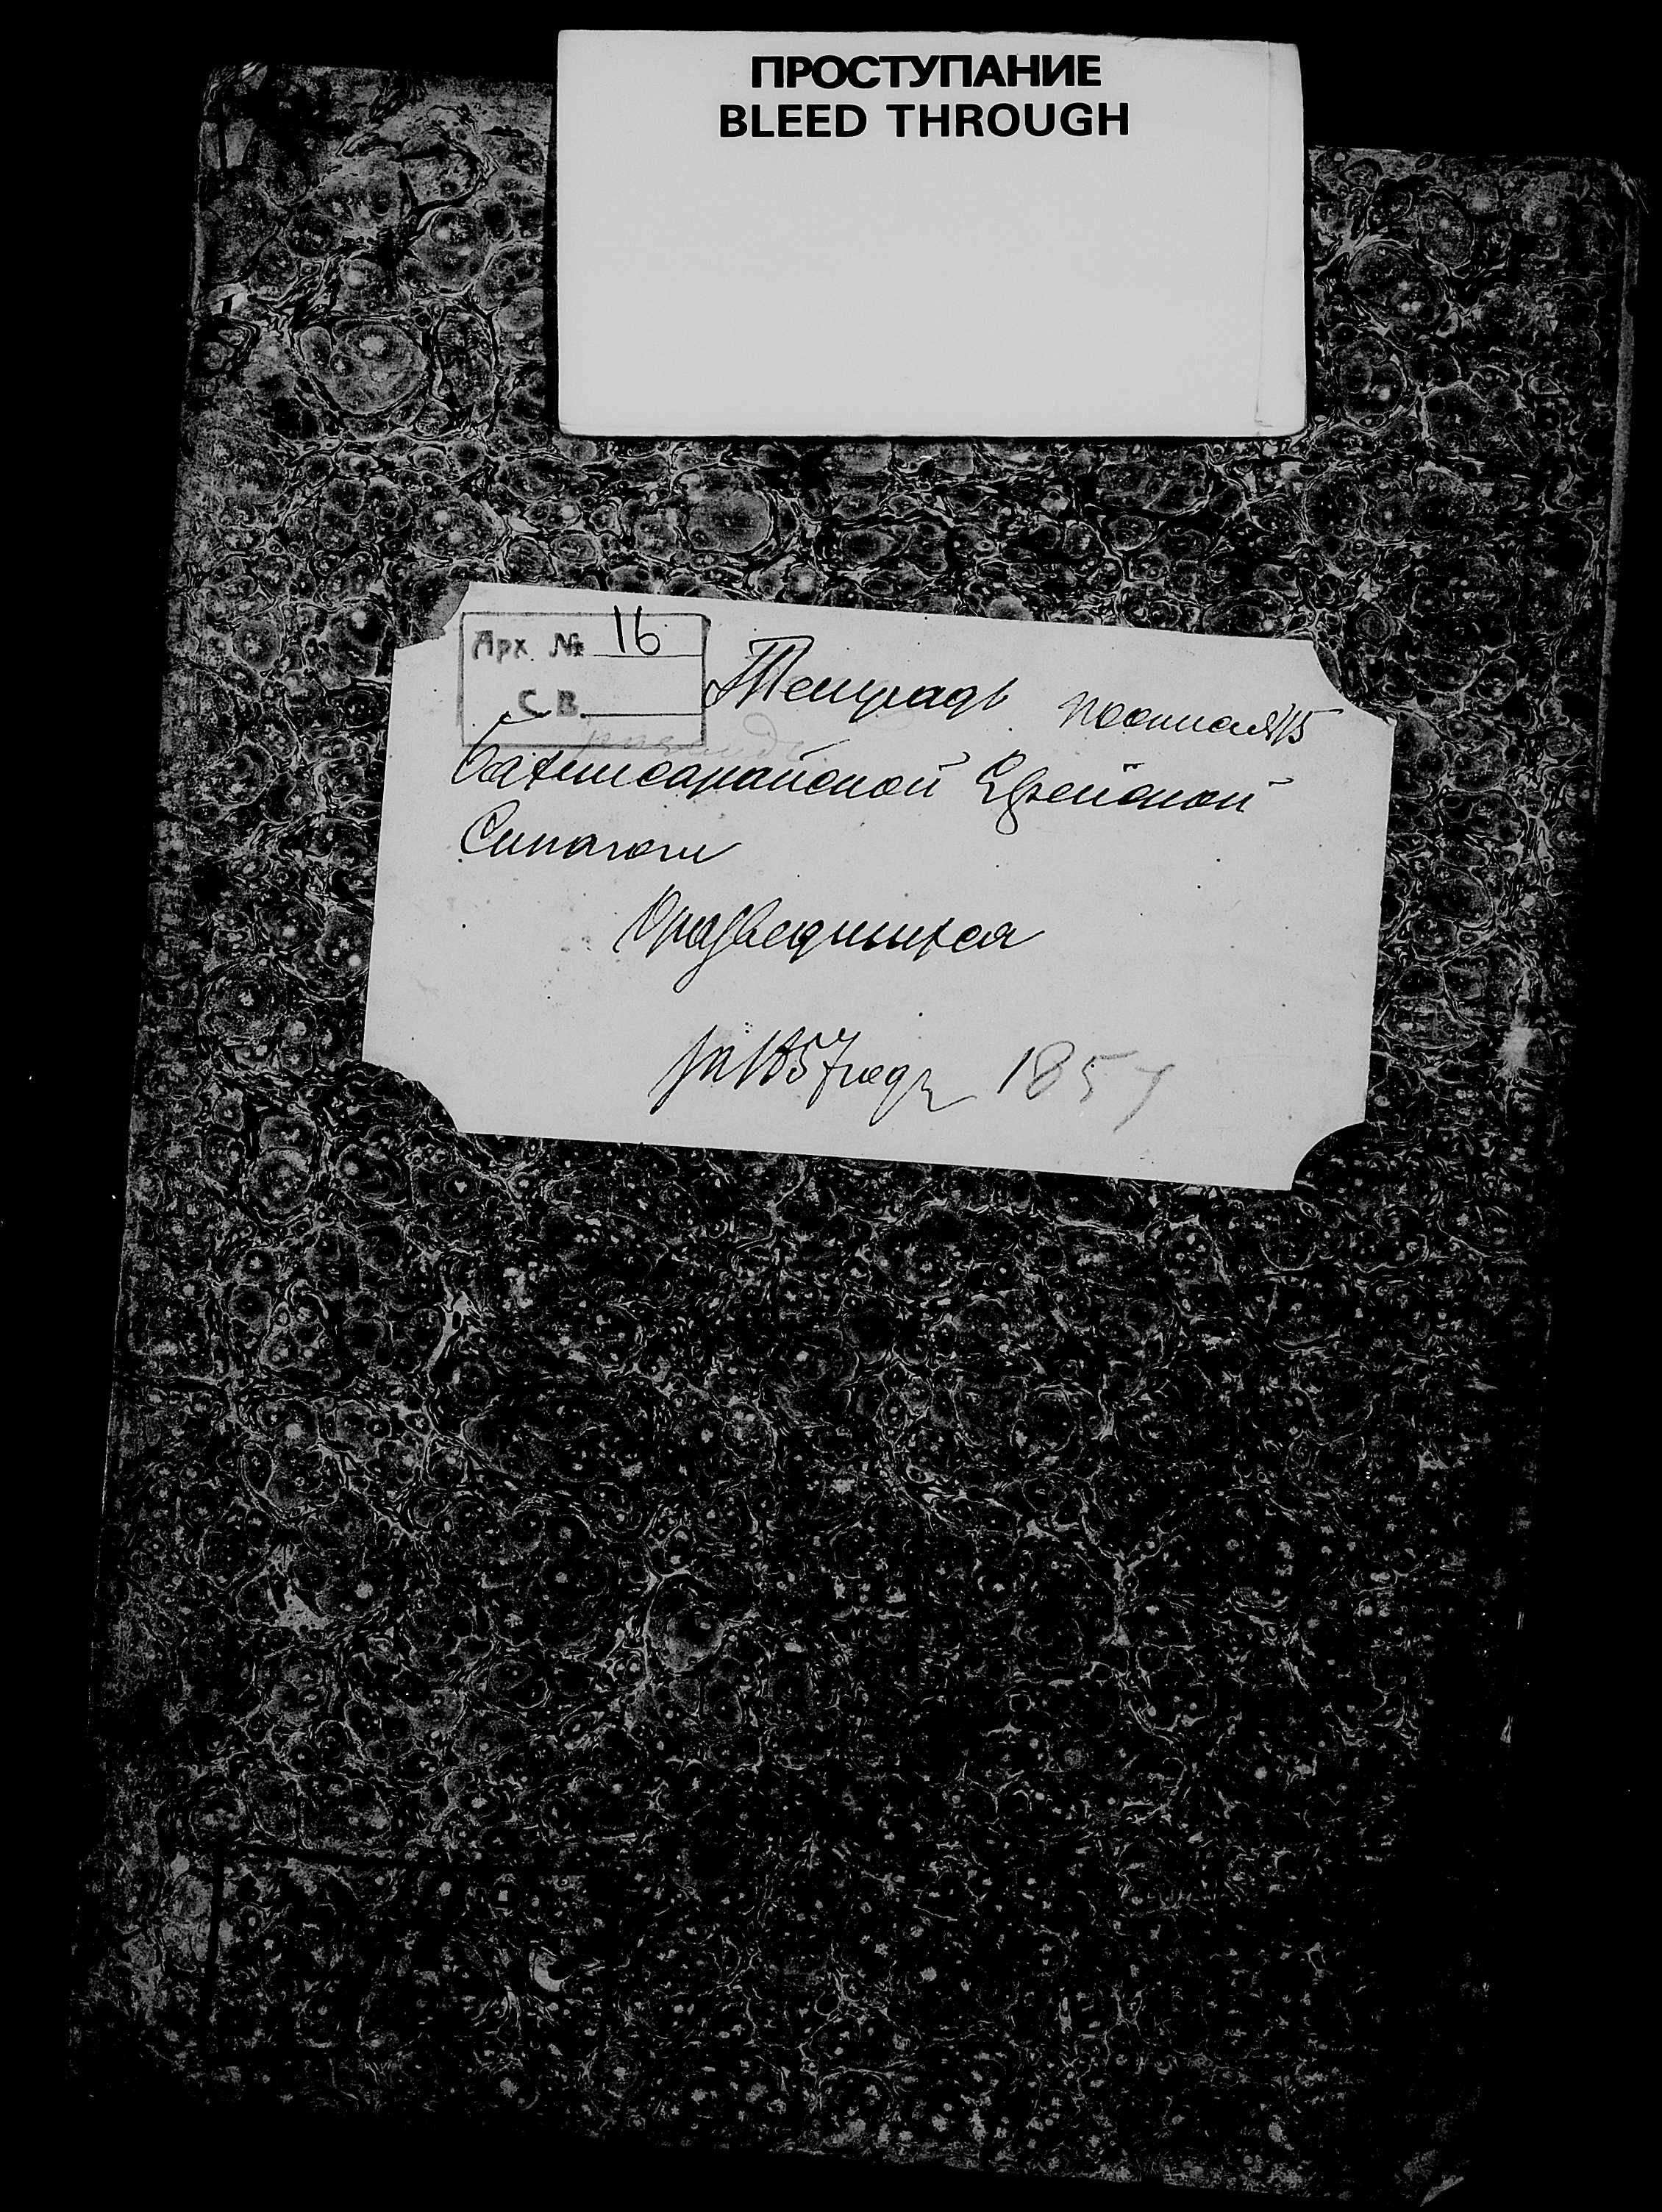 ПРОСТУПАНИЕ
BLEED THROUGH
Арх. № 16
С В
Тетрадь
Бахчисарайской Еврейской
Синагоги
О разведшихся
на 1857 годъ 1857